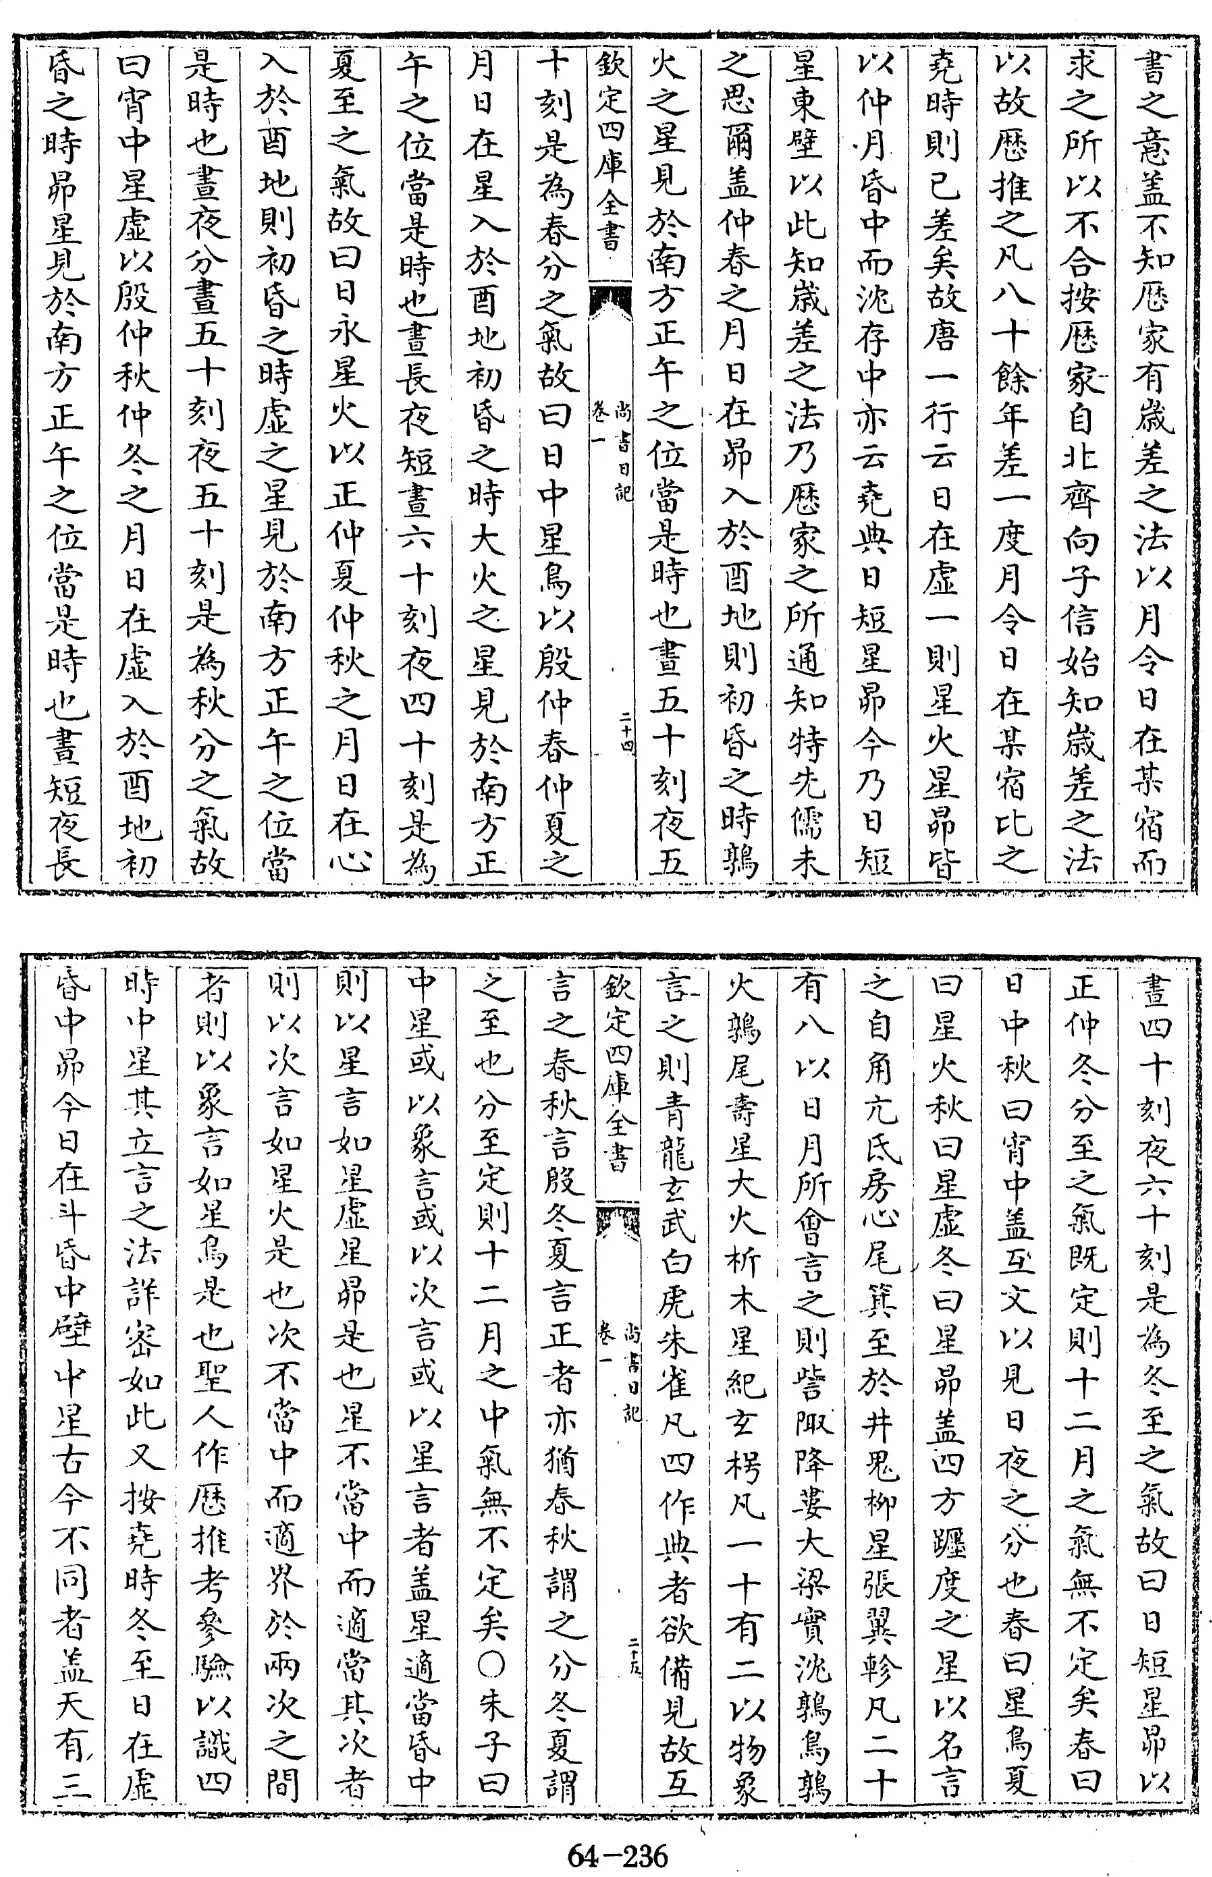 書之意蓋不知歴家有嵗差之法以月令日在某宿而
求之所以不合按歴家自北齊向子信始知嵗差之法
以故歴推之凡八十餘年差一度月令日在某宿比之
堯時則已差矣故唐一行云日在虛一則星火星昴皆
以仲月昏中而沈存中亦云堯典日短星昴今乃日短
星東壁以此知嵗差之法乃歴家之所通知特先儒未
之思爾盖仲春之月日在昴入於酉地則初昏之時鶉
火之星見於南方正午之位當是時也晝五十刻夜五
欽定四庫全書
尚書日記
卷一
二十四
十刻是為春分之氣故曰日中星鳥以殷仲春仲夏之
月日在星入於酉地初昏之時大火之星見於南方正
午之位當是時也晝長夜短晝六十刻夜四十刻是為
夏至之氣故曰日永星火以正仲夏仲秋之月日在心
入於酉地則初昏之時虛之星見於南方正午之位當
是時也晝夜分晝五十刻夜五十刻是為秋分之氣故
曰宵中星虛以殷仲秋仲冬之月日在虛入於酉地初
昏之時昴星見於南方正午之位當是時也晝短夜長
晝四十刻夜六十刻是為冬至之氣故曰日短星昴以
正仲冬分至之氣既定則十二月之氣無不定矣春曰
日中秋曰宵中盖互文以見日夜之分也春曰星鳥夏
曰星火秋曰星虛冬曰星昴盖四方躔度之星以名言
之自角亢氐房心尾箕至於井鬼柳星張翼軫凡二十
有八以日月所會言之則訾陬降婁大梁實沈鶉鳥鶉
火鶉尾壽星大火析木星紀玄枵凡一十有二以物象
言之則青龍玄武白虎朱雀凡四作典者欲備見故互
欽定四庫全書
尚書日記
卷一
二十五
言之春秋言殷冬夏言正者亦猶春秋謂之分冬夏謂
之至也分至定則十二月之中氣無不定矣○朱子曰
中星或以象言或以次言或以星言者盖星適當昏中
則以星言如星虛星昴是也星不當中而適當其次者
則以次言如星火是也次不當中而適界於兩次之間
者則以象言如星鳥是也聖人作歴推考參驗以識四
時中星其立言之法詳宻如此又按堯時冬至日在虛
昏中昴今日在斗昏中壁中星古今不同者盖天有三
64-236